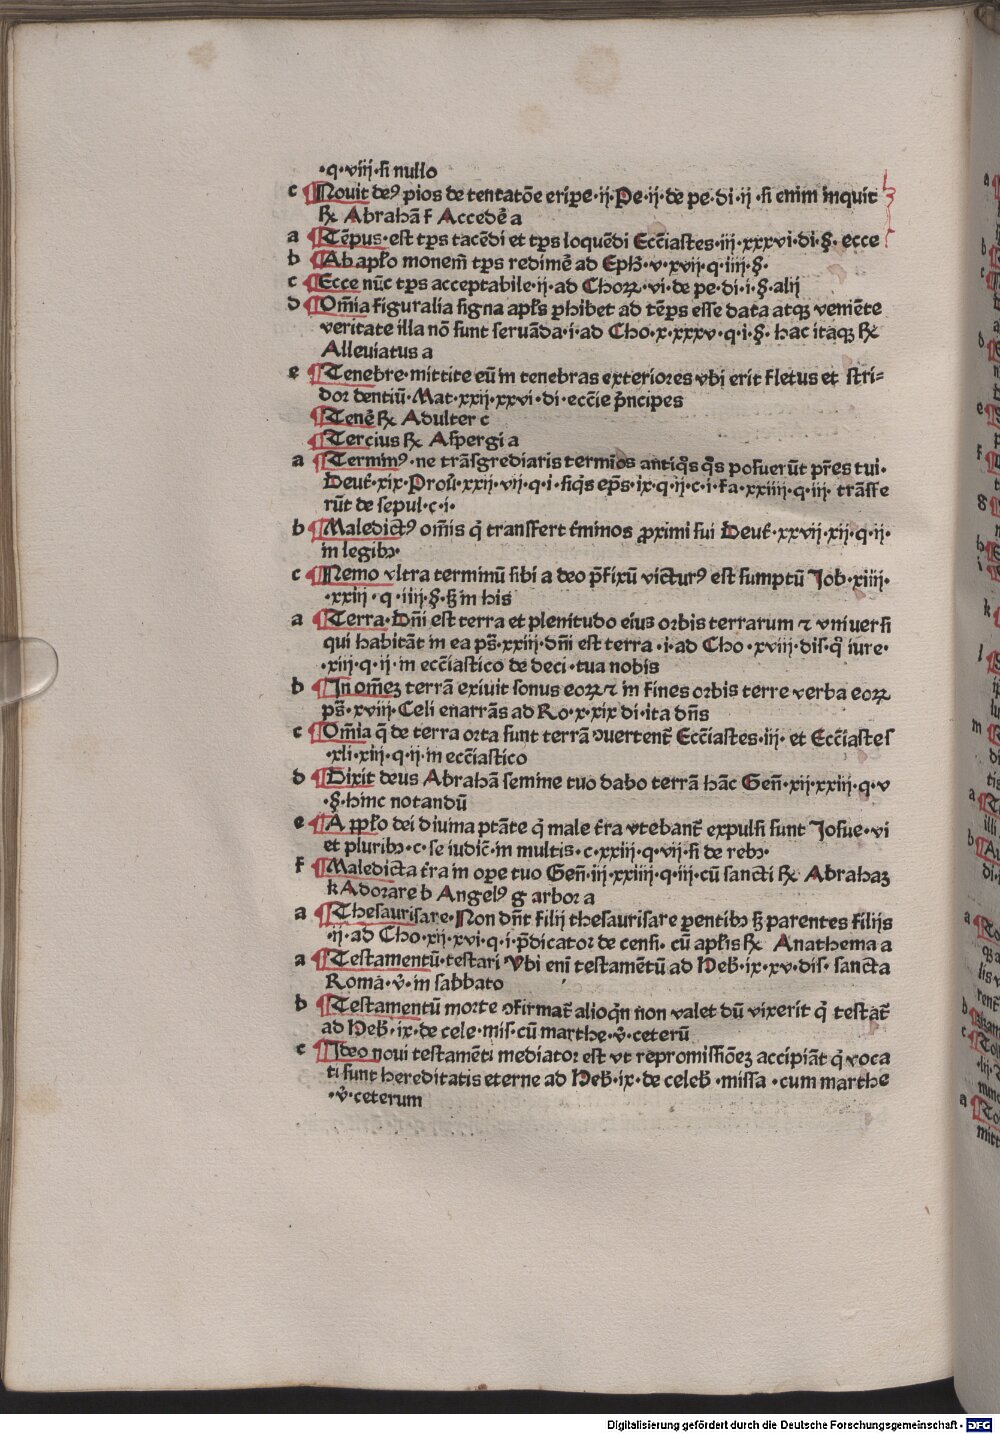 ·q·viij·si nullo
c ¶Nouit deꝰ pios de tentatōe eriꝑe·ij·Pe·ij·de pe·di·ij ·si enim inquit
℞ Abrahā f Accedē a
a ¶Tēpus·est tꝑs tacēdi et tꝑs loquēdi Ecc̄iastes·iij·xxxvi·di·§· ecce
b ¶Ab apl̄o monem̄ tꝑs redimē ad Eph̄·v·xvij·q·iiij·§·
c ¶Ecce nūc tꝑs acceptabile·ij·ad Choꝝ·vi·de pe·di·i·§·alij
d ¶Om̄ia figuralia signa apl̄s ꝓhibet ad tēꝑs esse data atqꝫ veniēte
veritate illa nō sunt seruāda·i·ad Cho·x·xxxv·q·i·§· hac itaqꝫ ℞
Alleuiatus a
e ¶Tenebre·mittite eū in tenebras exteriores vbi erit fletus et stri-
dor dentiū·Mat·xxij·xxvi·di·ecc̄ie p̄ncipes
¶Tenē ℞ Adulter c
¶Tercius ℞ Aspergi a
a ¶Terminꝰ·ne trāsgrediaris termios antiq̄s q̄s posuerūt pr̄es tui·
Deut̄·xix·Prou̅·xxij·vij·q·i·siq̄s ep̄s·ix·q·ij·c·i·fa·xxiiij·q·iij· trāsfe
rūt de sepul·c·i·
b ¶Maledictꝰ om̄is q̄ transfert t̄minos ꝓximi sui Deut̄·xxvij·xij·q·ij·
in legibꝫ·
c ¶Nemo vltra terminū sibi a deo p̄fixū victurꝰ est sumptū Job·xiiij·
·xxiij·q·iiij·§·ꝫ in his
a ¶Terra·Dn̄i est terra et plenitudo eius orbis terrarum ⁊ vniuersi
qui habitāt in ea ps̄·xxiij·dn̄i est terra ·i·ad Cho·xviij·dis·q̄ iure·
·xiij·q·ij·in ecc̄iastico de deci·tua nobis
b ¶In om̄eꝫ terrā exiuit sonus eoꝝ ⁊ in fines orbis terre verba eoꝝ
ps̄·xviij·Celi enarrās ad Ro·x·xix di·ita dn̄s
c ¶Om̄ia q̄ de terra orta sunt terrā ꝯuertent̄ Ecc̄iastes·iij· et Ecc̄iastes
·xli·xiij·q·ij·in ecc̄iastico
d ¶Dixit deus Abrahā semine tuo dabo terrā hāc Gen̄·xij·xxiij·q·v
·§·hinc notandū
e ¶A ꝓpl̄o dei diuina ptāte q̄ male t̄ra vtebant̄ expulsi sunt Josue·vi
et pluribꝫ·c·se iudic̄·in multis·c·xxiij·q·vij·si de rebꝫ·
f ¶Maledicta t̄ra in oꝑe tuo Gen̄·iij·xxiiij·q·iij·cū sancti ℞ Abrahaꝫ
k Adorare b Angelꝰ g arbor a
a ¶Thesaurisare·Non dn̄t filij thesaurisare ꝑentibꝫ ꝫ parentes filijs
·ij·ad Cho·xij·xvi·q·i·p̄dicator de censi·cū apl̄is ℞ Anathema a
a ¶Testamentū·testari Vbi eni testamētū ad Heb̄·ix·xv·dis· sancta
Roma·v̄·in sabbato
b ¶Testamentū morte ꝯfirmat̄ alioq̄n non valet dū vixerit q̄ testat̄
ad Heb̄·ix·de cele·mis·cū marthe·v̄·ceterū
c ¶Ideo noui testamēti mediator est vt repromissiōeꝫ accipiāt q̄ voca
ti sunt hereditatis eterne ad Heb̄·ix·de celeb̄·missa ·cum marthe
·v̄·ceterum
Digitalisierung gefördert durch die Deutsche Forschungsgemeinschaft - DFG